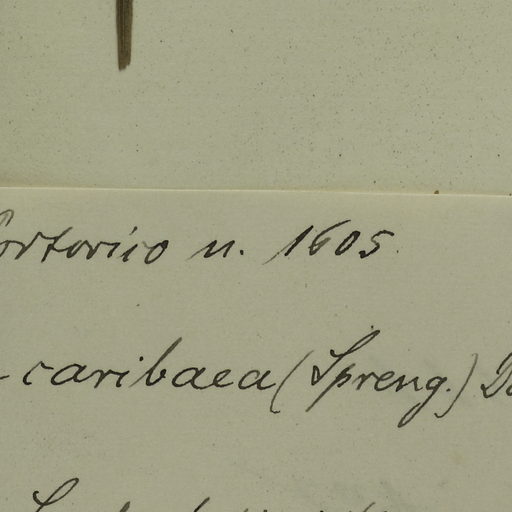 ortorico n. 1605.
-caribaea (Spreng.)